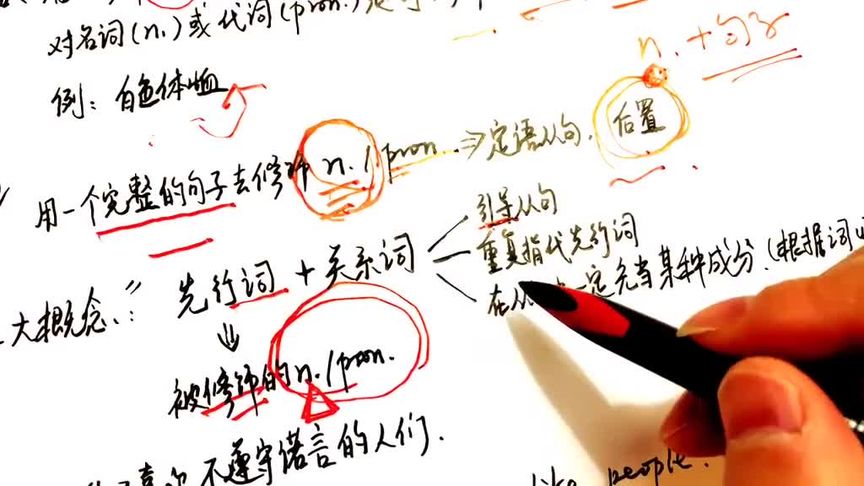 对名词(n.)或代词(pron.)
n. + 句子
例：白色体恤
用一个完整的句子去修饰 n. / pron. ⇒ 定语从句. 后置
大概念： 先行词 + 关系词
引导从句
重复指代先行词
在从 一定充当某种成分.(根据词
⇓
被修饰的n./pron.
喜欢不遵守诺言的人们.
like people.